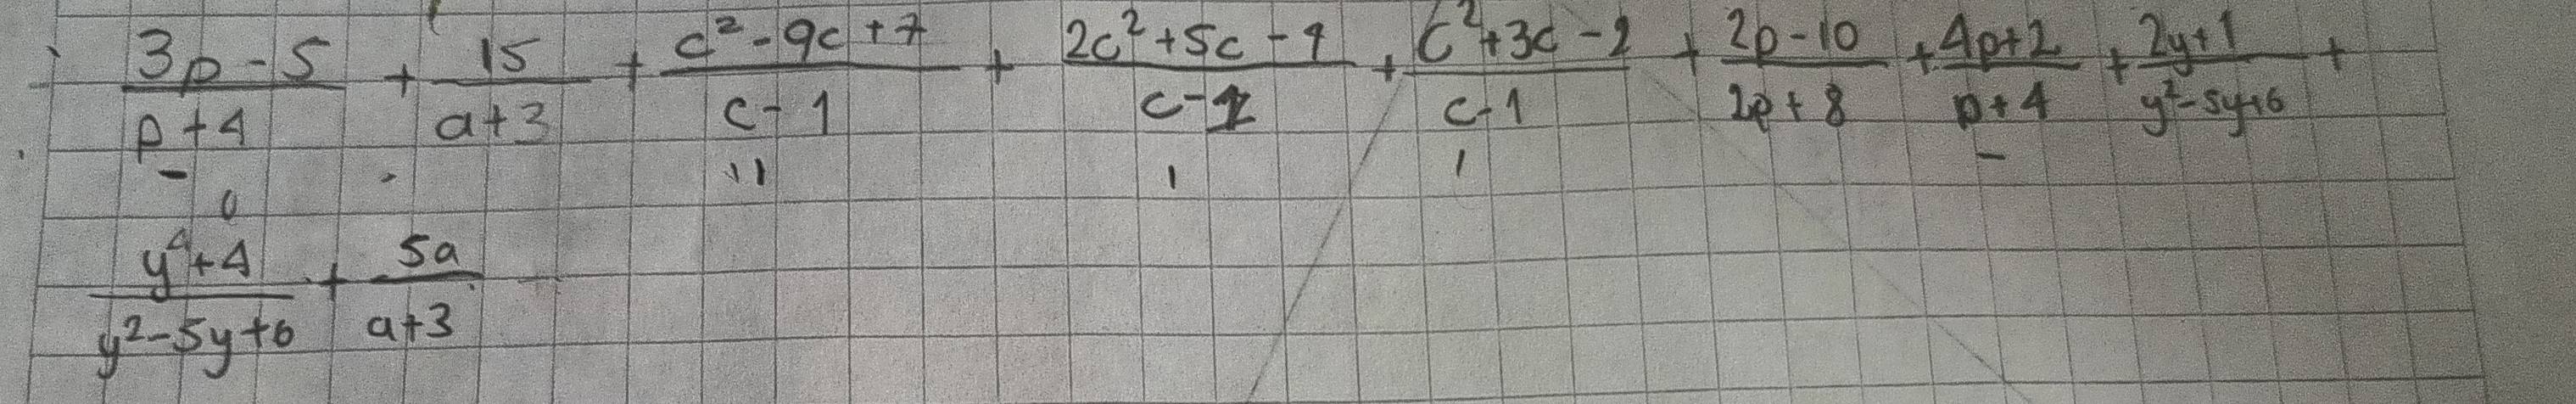 (3p - 5)/(p + 4) + 15/(a + 3) + (c² - 9c + 7)/(c - 1) + (2c² + 5c - 9)/(c - 1) + (c² + 3c - 2)/(c - 1) + (2p - 10)/(2p + 8) + (4p + 2)/(p + 4) + (2y + 1)/(y² - 5y + 6) +
(y⁴ + 4)/(y² - 5y + 6) + 5a/(a + 3)